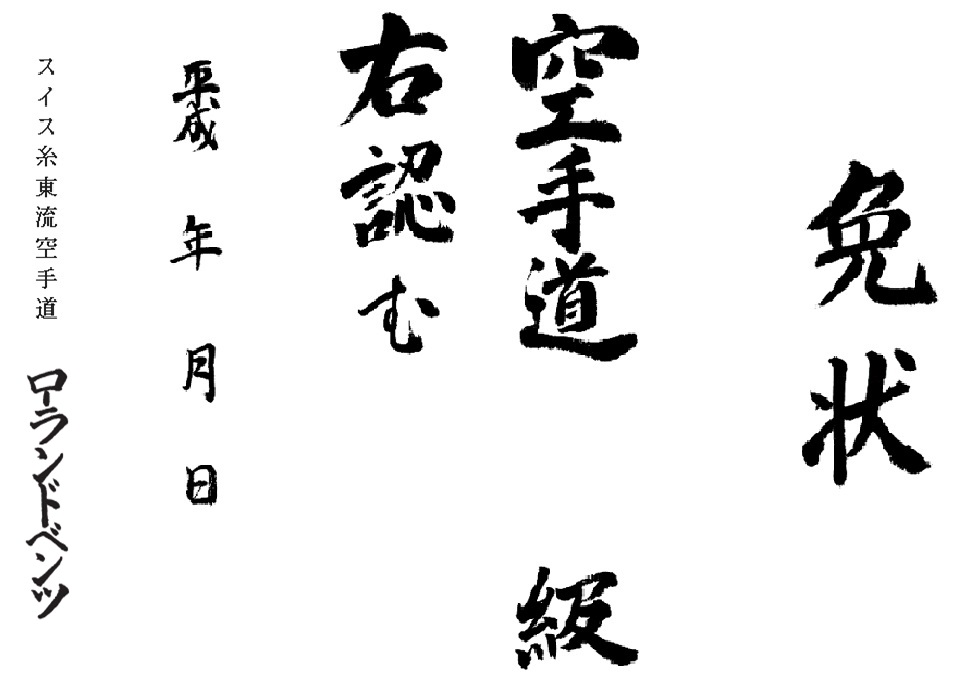 免状
空手道 級
右認む
平成 年 月 日
スイス糸東流空手道
ローランドベンツ